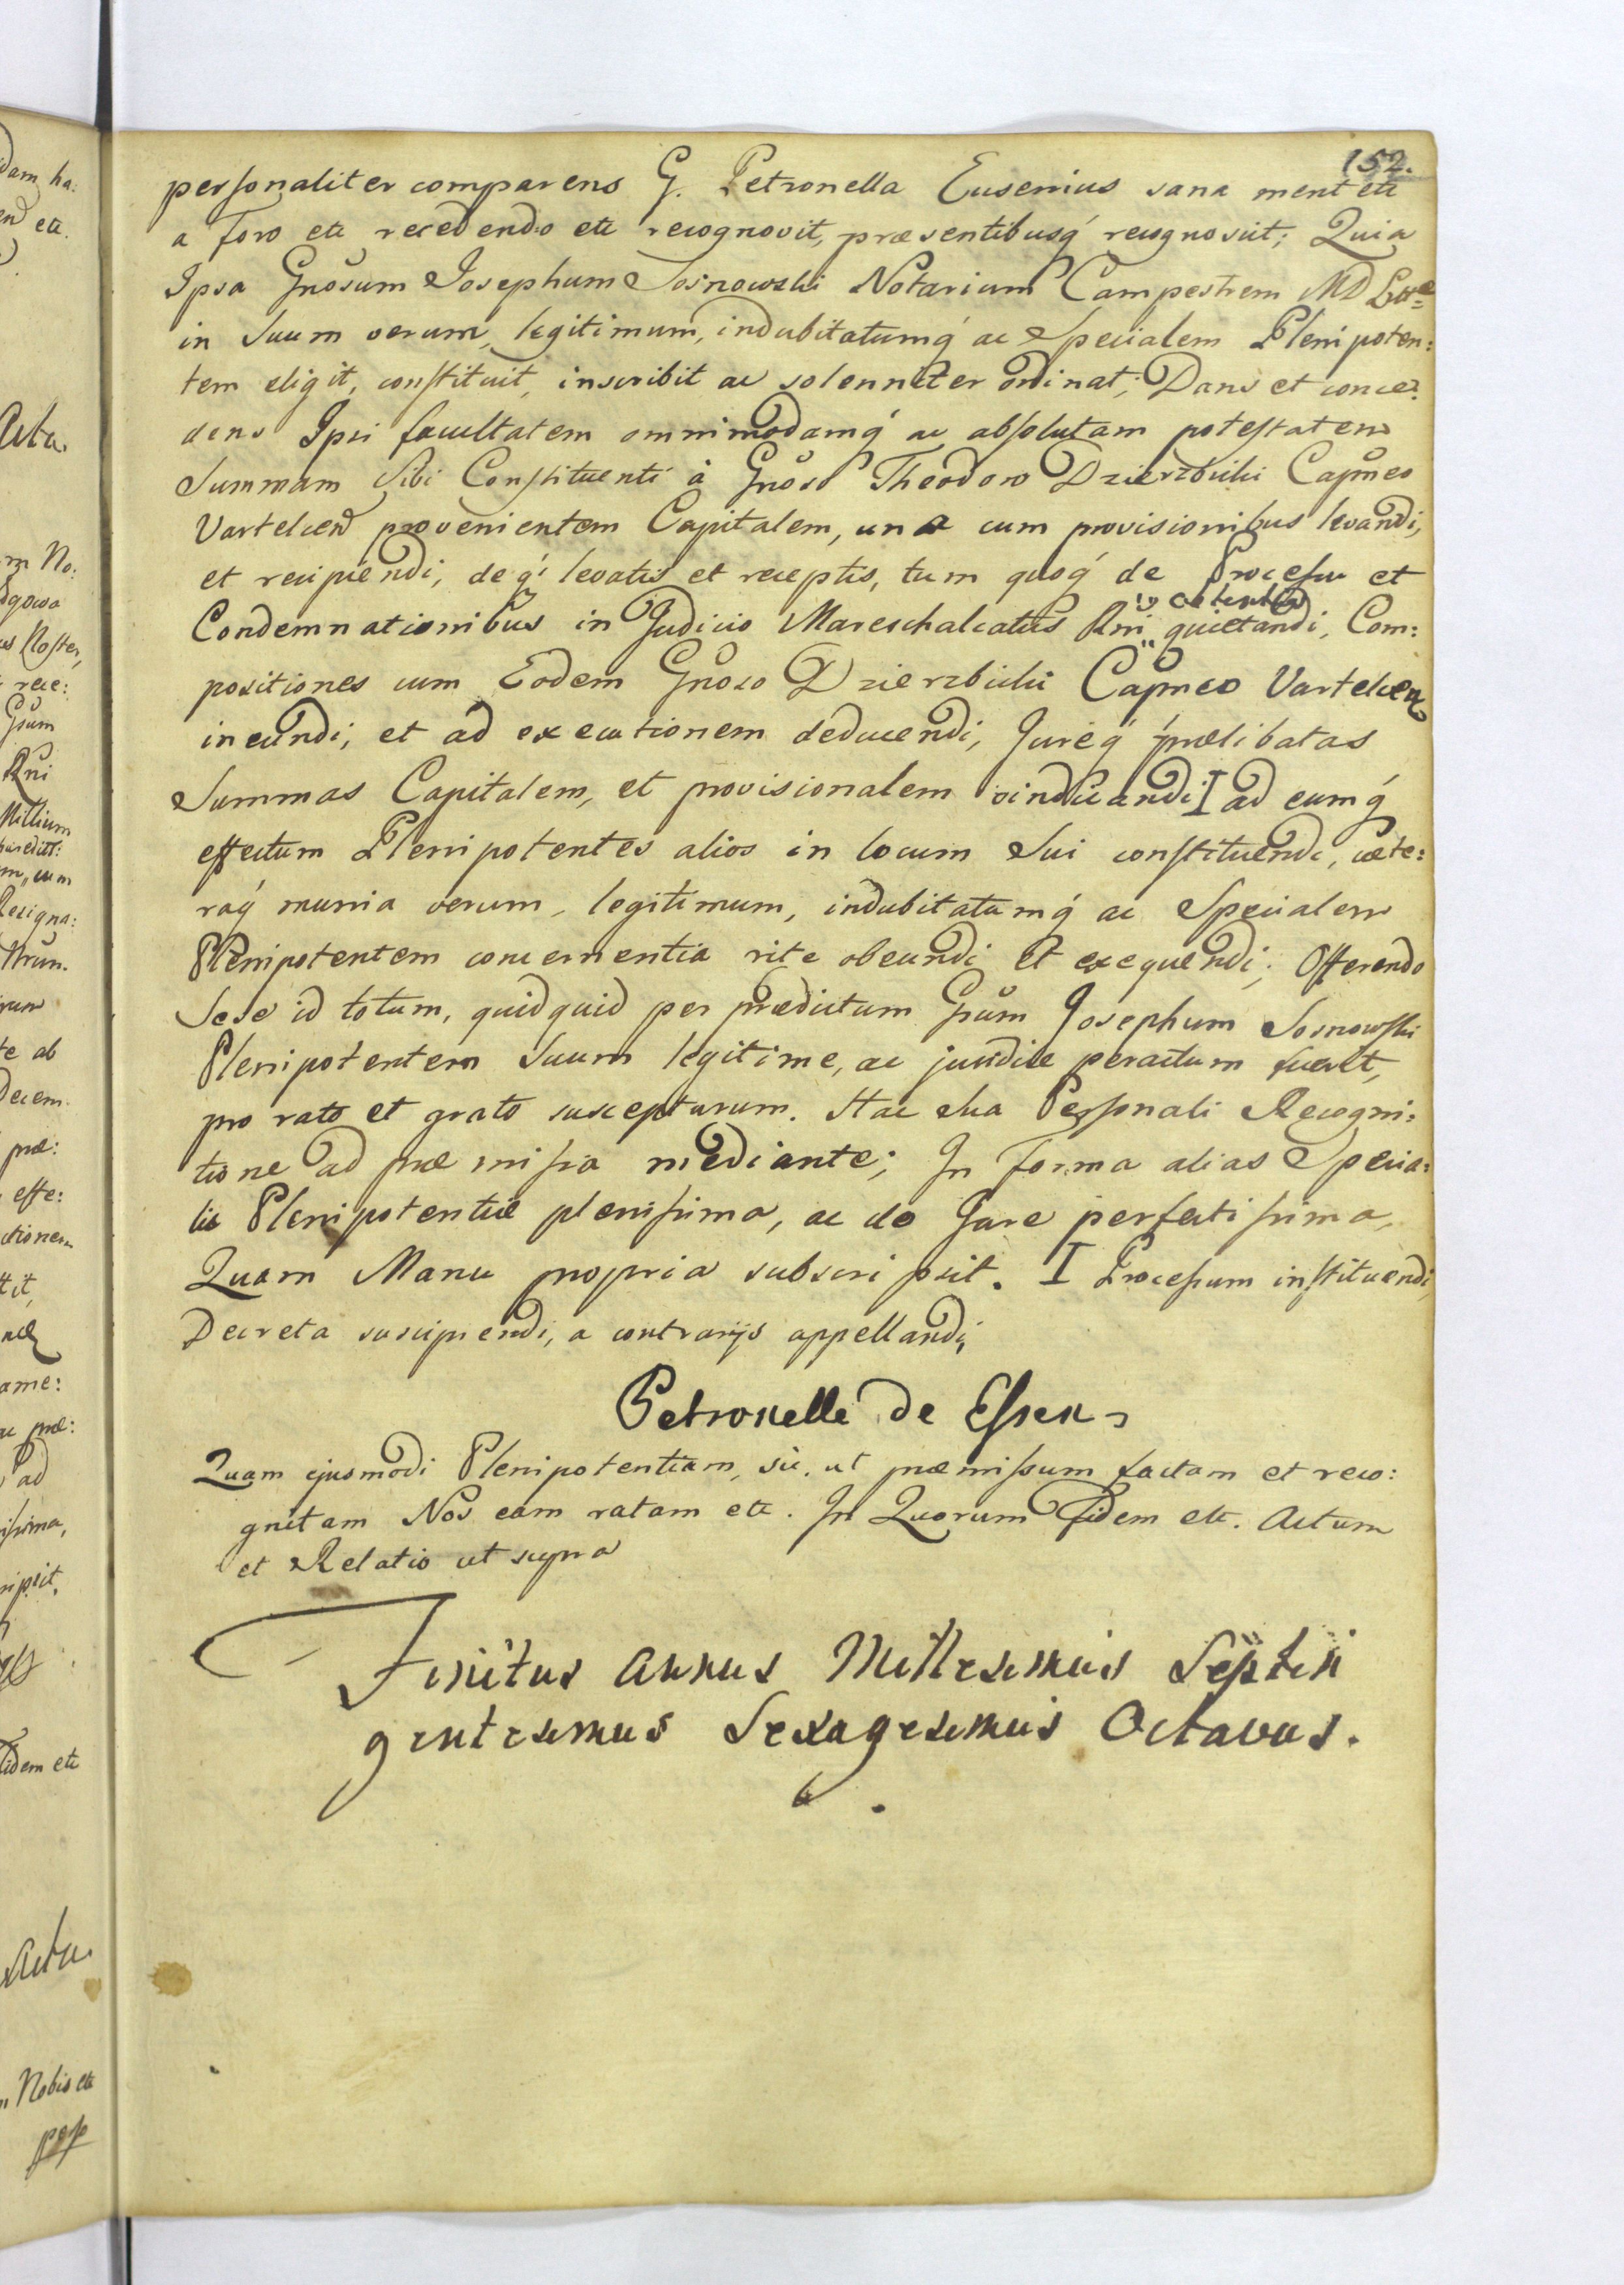 152.
personaliter comparens G. Petronella Eusenius sana ment etc
a foro etc recedendo etc recognovit, præsentibusq́ recognoscit; Quia
Ipsa Gnosum Josephum Sosnowski Notarium Campestrem MD Litt=
in Suum verum, legitimum, indubitatumq́ ac Specialem Plenipoten:
tem eligit, constituit, inscribit ac solenniter ordinat; Dans et conce:
dens Ipsi facultatem omnimodamq́ ac absolutam potestatem
Summam Sibi Constituenti à Gnoso Theodoro Dzierzbicki Capneo
Vartelicen provenientem Capitalem, una cum provisionibus levandi,
et recipiendi, de q́ levatis et receptis, tum quoq́ de Processu et
Condemnationibus in Judicio Mareschalcatus Rni obtentis quietandi, Com:
positiones cum Eodem Gnoso Dzierzbicki Capneo Vartelicen
ineundi, et ad executionem deducendi, Jureq́ prælibatas
Summas Capitalem, et provisionalem vindicandi I ad eumq́
effectum Plenipotentes alios in locum Sui constituendi, cæte:
raq́ munia verum, legitimum, indubitatumq́ ac Specialem
Plenipotentem concernentia rite obeundi et exequendi; Offerendo
Sese id totum, quidquid per prædictum Gsum Josephum Sosnowski
Plenipotentem Suum legitime, ac juridice peractum fuerit,
pro rato et grato suscepturum. Hac Sua Personali Recogni:
tione ad præmissa mediante; In forma alias Specia:
lis Plenipotentiæ plenissima, ac de Jure perfectissima,
Quam Manu propria subscripsit. I Processum instituendi,
Decreta suscipiendi, a contrarijs appellandi
Petronelle de Essen
Quam ejusmodi Plenipotentiam, sic, ut præmissum factam et reco:
gnitam Nos eam ratam etc. In Quorum Fidem etc. Actum
et Relatio ut supra
Finitus Annus Millesimus Septin
gentesimus Sexagesimus Octavus.